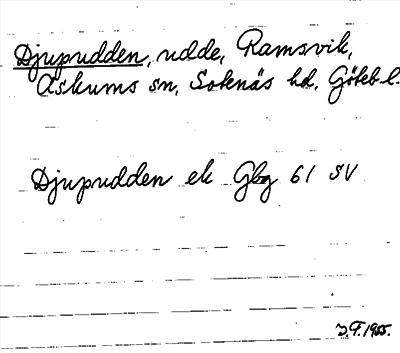 Djupudden, udde, Ramsvik,
Askums sn, Sotenäs hd. Göteb.l.
Djupudden ek Gbg 61 SV
J.F. 1955.